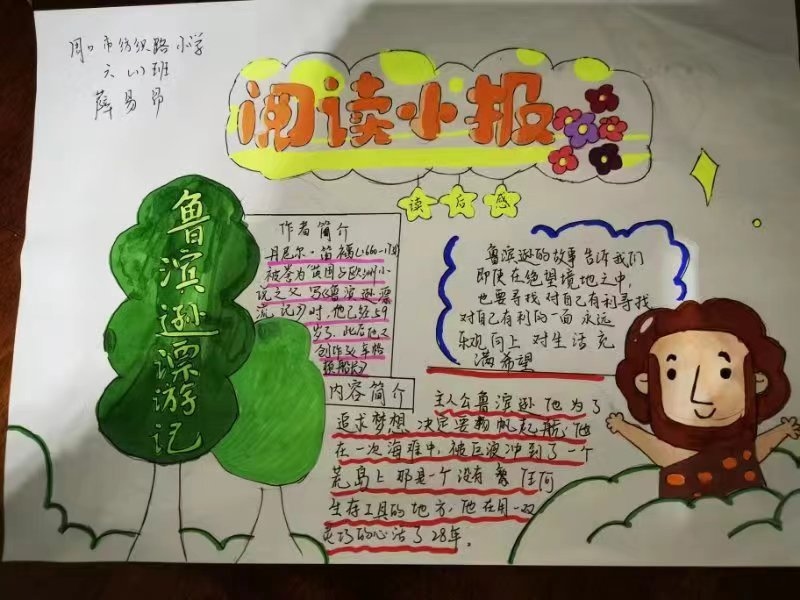 周口市纺织路小学
六(1)班
薛易昂
阅读小报
读后感
鲁滨逊漂流记
作者简介
丹尼尔·笛福(1660-1731)
被誉为"英国与欧洲小
说之父"写《鲁滨逊漂
流记》时,他已经59
岁了.此后他又
创作了辛格
顿船长》
鲁滨逊的故事告诉我们
即使在绝望境地之中,
也要寻找对自己有利寻找
对自己有利的一面永远
乐观向上对生活充
满希望
内容简介
主人公鲁滨逊他为了
追求梦想决定要扬帆起航,他
在一次海难中,被巨浪冲到了一个
荒岛上那是一个没有任何
生存工具的地方,他在用一双
灵巧的心活了28年。